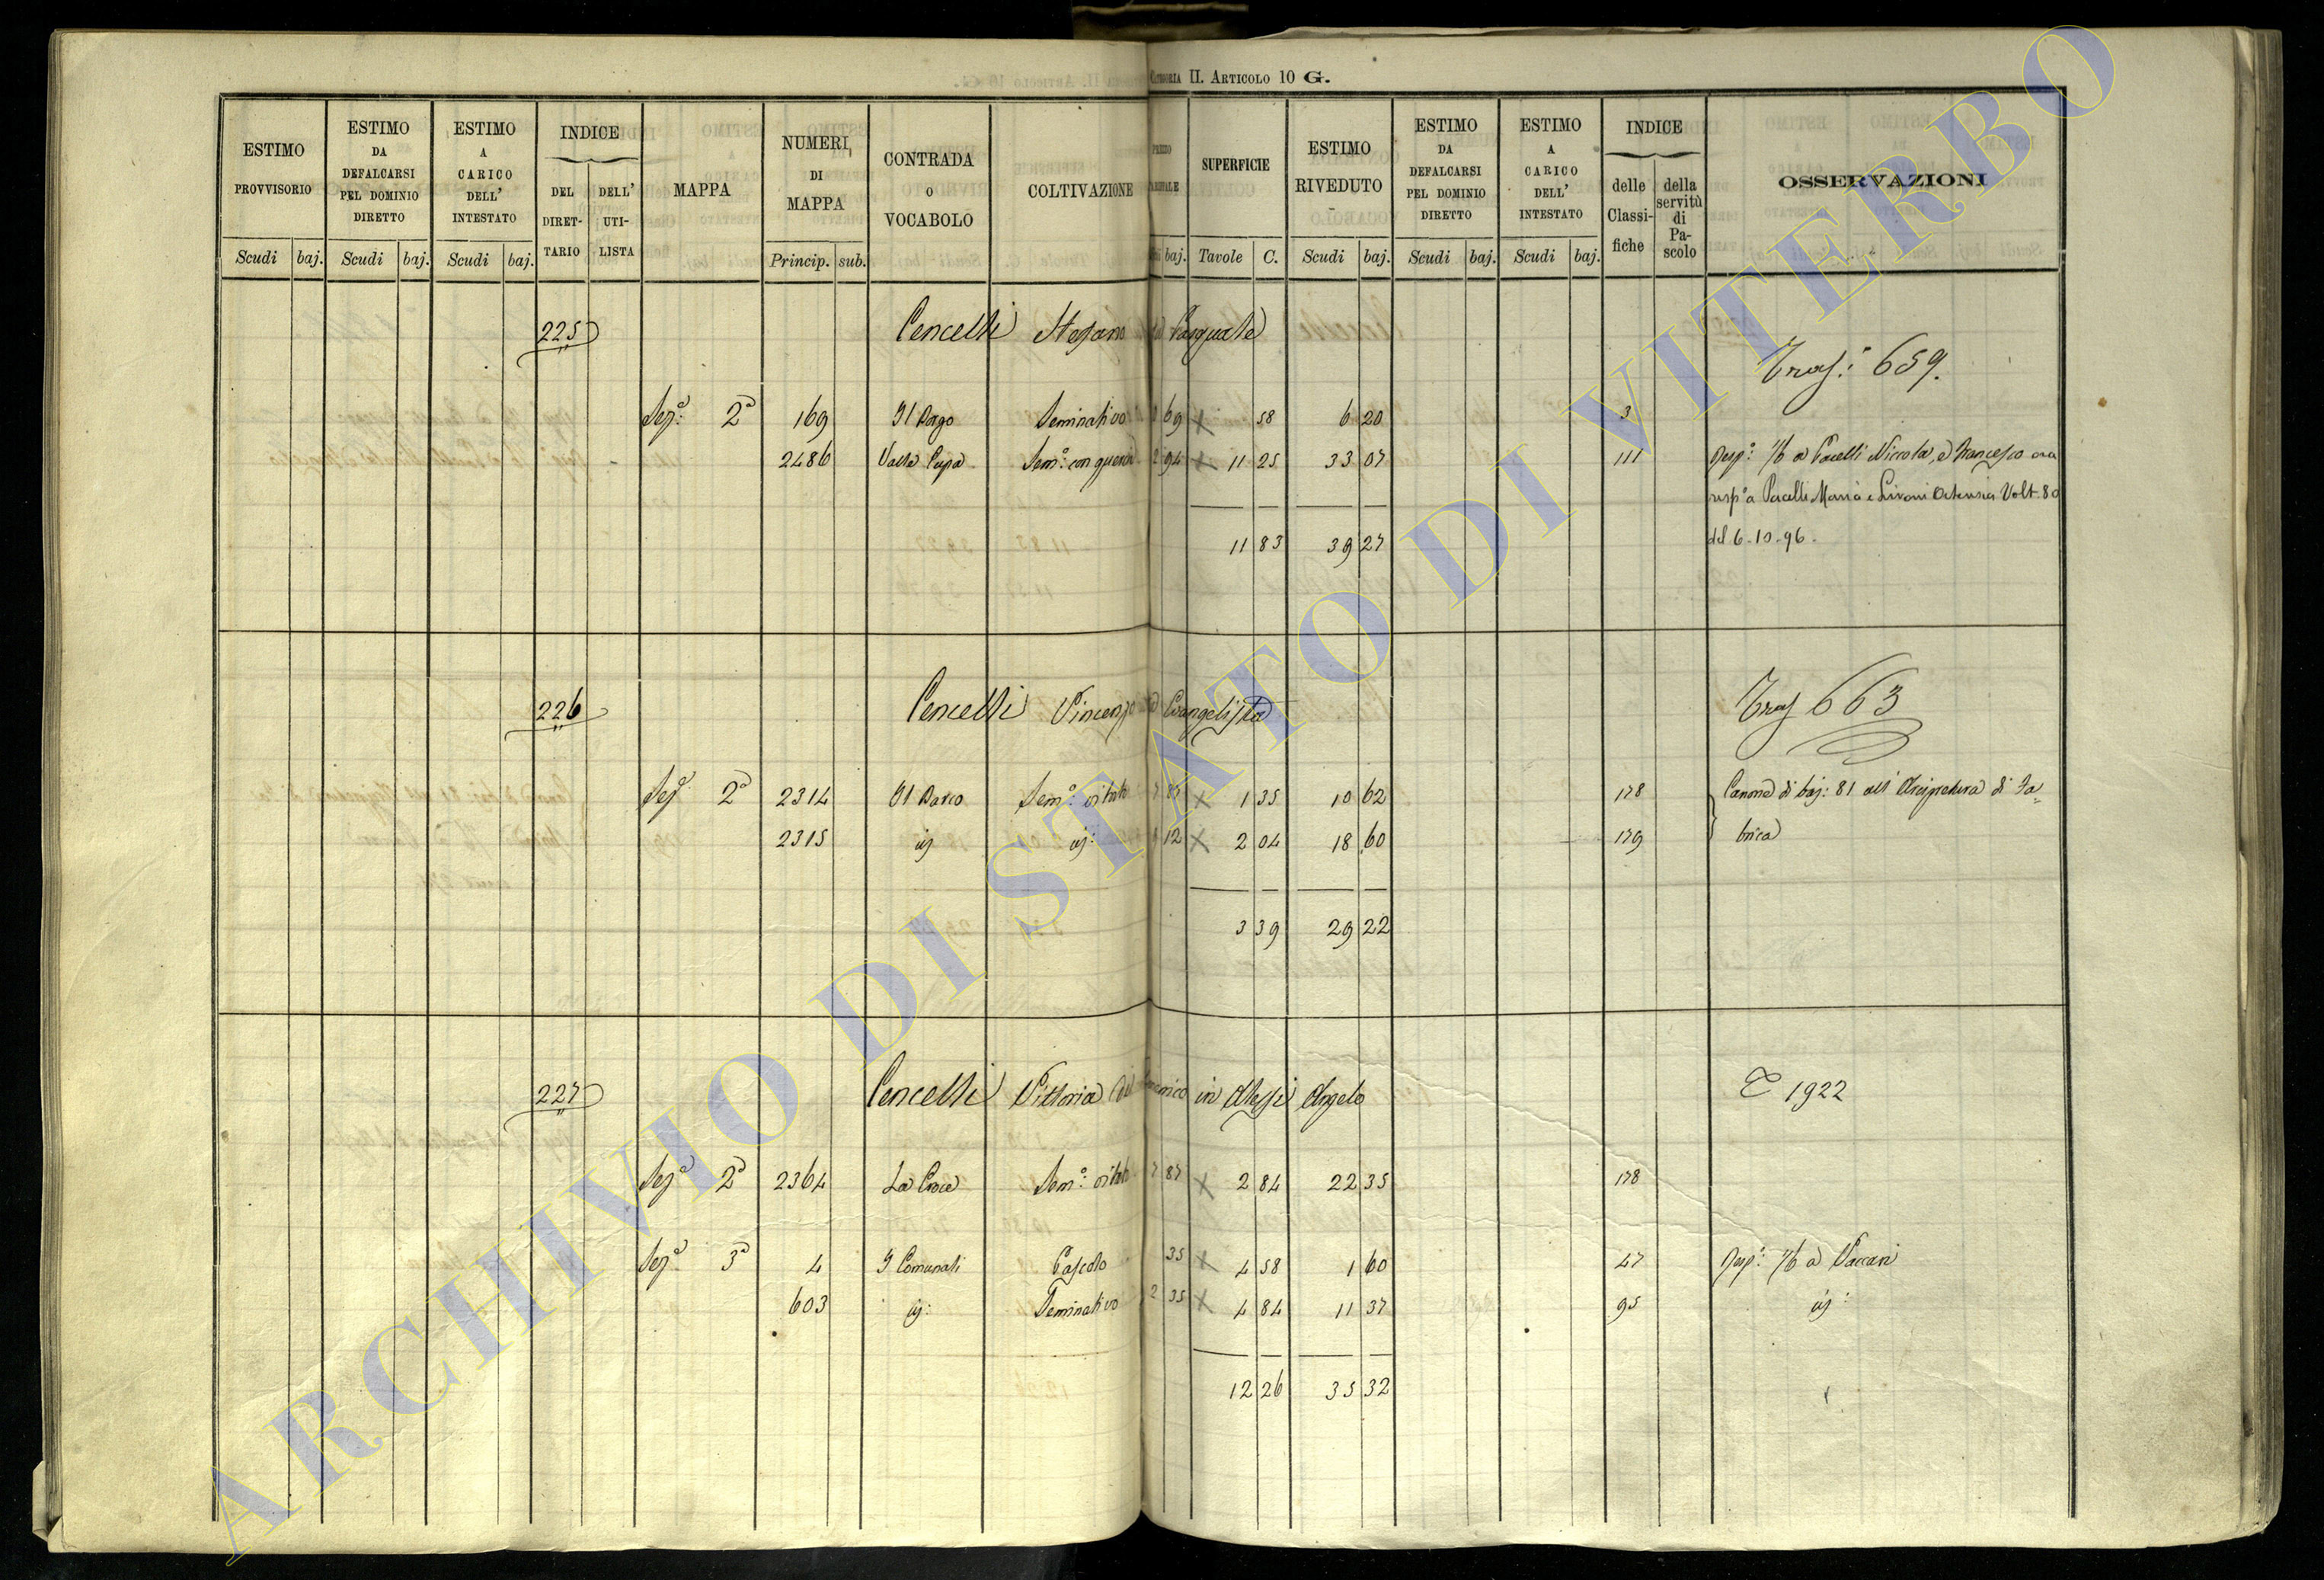 CATEGORIA II. ARTICOLO 10 G.
ESTIMO PROVVISORIO Scudi baj.
ESTIMO DA DEFALCARSI PEL DOMINIO DIRETTO Scudi baj.
ESTIMO A CARICO DELL' INTESTATO Scudi baj.
INDICE DEL DIRET-TARIO DELL' UTI-LISTA
MAPPA
NUMERI DI MAPPA Princip. sub.
CONTRADA O VOCABOLO
COLTIVAZIONE
baj.
SUPERFICIE Tavole C.
ESTIMO RIVEDUTO Scudi baj.
ESTIMO DA DEFALCARSI PEL DOMINIO DIRETTO Scudi baj.
ESTIMO A CARICO DELL' INTESTATO Scudi baj.
INDICE delle Classi-fiche della servitù di Pa-scolo
OSSERVAZIONI
225 Cencelli Stefano Pasquale
Tras: 659.
Sez.a 2a 169 Il Seminativo 69 58 6 20 3
2486 Valle Cupa Sem.o con querci 2 94 11 25 33 07 111 Resp.o 1/6 a Pacelli Niccola, e Francesco ora
resp.o a Pacelli Maria e Livoni Ortensia Volt. 80
del 6-10-96.
11 83 39 27
226 Cencelli Vincenzo Evangelista
Tras 663
Sez.a 2a 2314 Il Barco Sem.o vitato 7 87 1 35 10 62 178 Canone di baj: 81 all' Arcipretura di Fa=
2315 id id: 9 12 2 04 18 60 179 brica
3 39 29 22
227 Cencelli Vittoria di Domenico in Alessi Angelo
T 1922
Sez.a 2a 2364 La Croce Sem.o vitato 7 87 2 84 22 35 178
Sez.a 3a 4 I Comunali Pascolo 35 4 58 1 60 47 Resp.o 1/6 a Vaccari
603 id: Seminativo 2 35 4 84 11 37 95 id:
12 26 35 32
ARCHIVIO DI STATO DI VITERBO